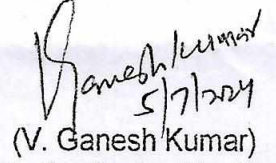 Ganesh Kumar
5/7/2024
(V. Ganesh Kumar)